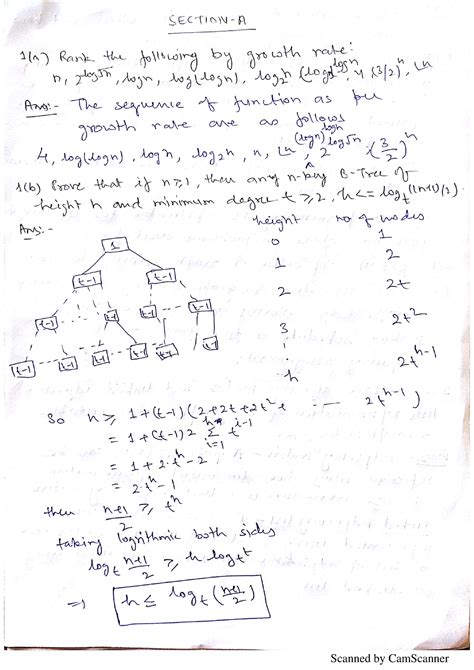 SECTION-A
1(a) Rank the following by growth rate:
n, 2^log√n, logn, log(logn), log₂n, (logn)^logn, 4, (3/2)^n, Ln
Ans:- The sequence of function as per
growth rate are as follows
4, log(logn), logn, log₂n, n, Ln, (logn)^logn, 2^log√n, (3/2)^n
1(b) Prove that if n≥1, then any n-key B-Tree of
height h and minimum degree t≥2, h<=log_t((n+1)/2).
Ans:-
height no of nodes
0 1
1 2
2 2t
3 2t²
h 2t^h-1
1
t-1 t-1
t-1 t-1 t-1 t-1 t-1
t-1 t-1 t-1 t-1 t-1 t-1
So n ≥ 1+(t-1)(2+2t+2t²+ ... 2t^h-1)
= 1+(t-1)2 Σ t^i-1
i=1
= 1+2·t^h-2
= 2·t^h-1
then n+1/2 ≥ t^h
taking logrithmic both sides
log_t n+1/2 ≥ h log_t t
⇒ h ≤ log_t (n+1/2)
Scanned by CamScanner